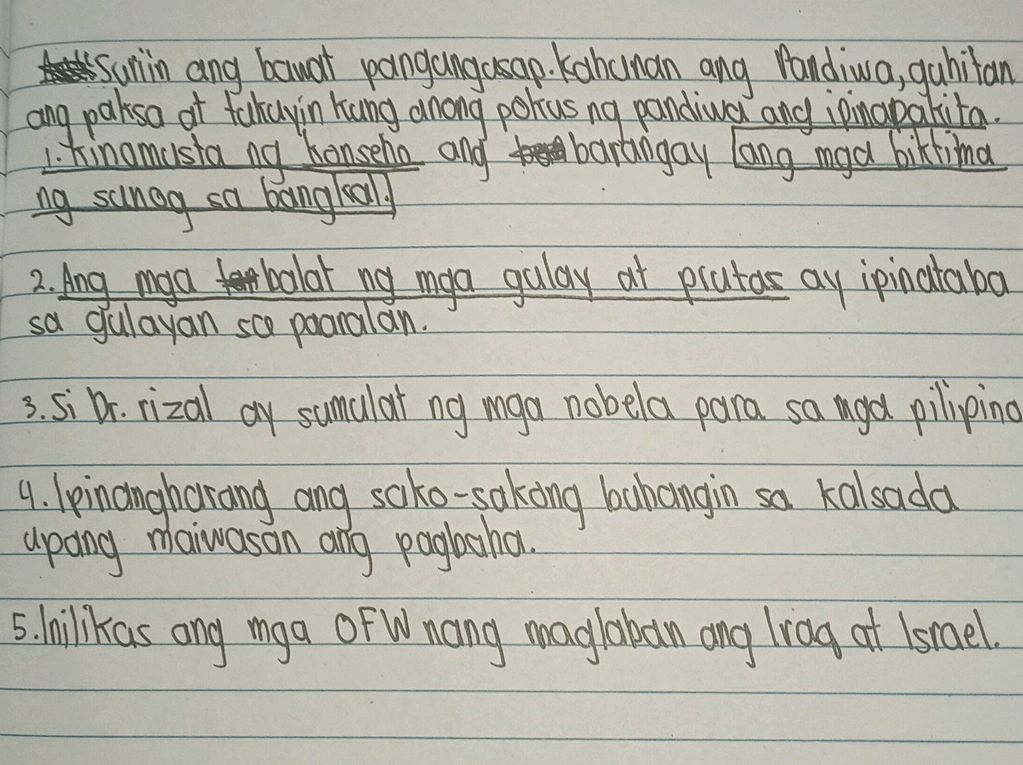 Suriin ang bawat pangungusap. Kahunan ang Pandiwa, guhitan
ang paksa at tukuyin kung anong pokus ng pandiwa ang ipinapakita.
1. Kinamusta ng konseho ang barangay ang mga biktima
ng sunog sa bangkal.
2. Ang mga balat ng mga gulay at prutas ay ipinataba
sa gulayan sa paaralan.
3. Si Dr. rizal ay sumulat ng mga nobela para sa mga pilipino
4. Ipinangharang ang sako-sakong buhangin sa kalsada
upang maiwasan ang pagbaha.
5. Inilikas ang mga OFW nang maglaban ang Iraq at Israel.